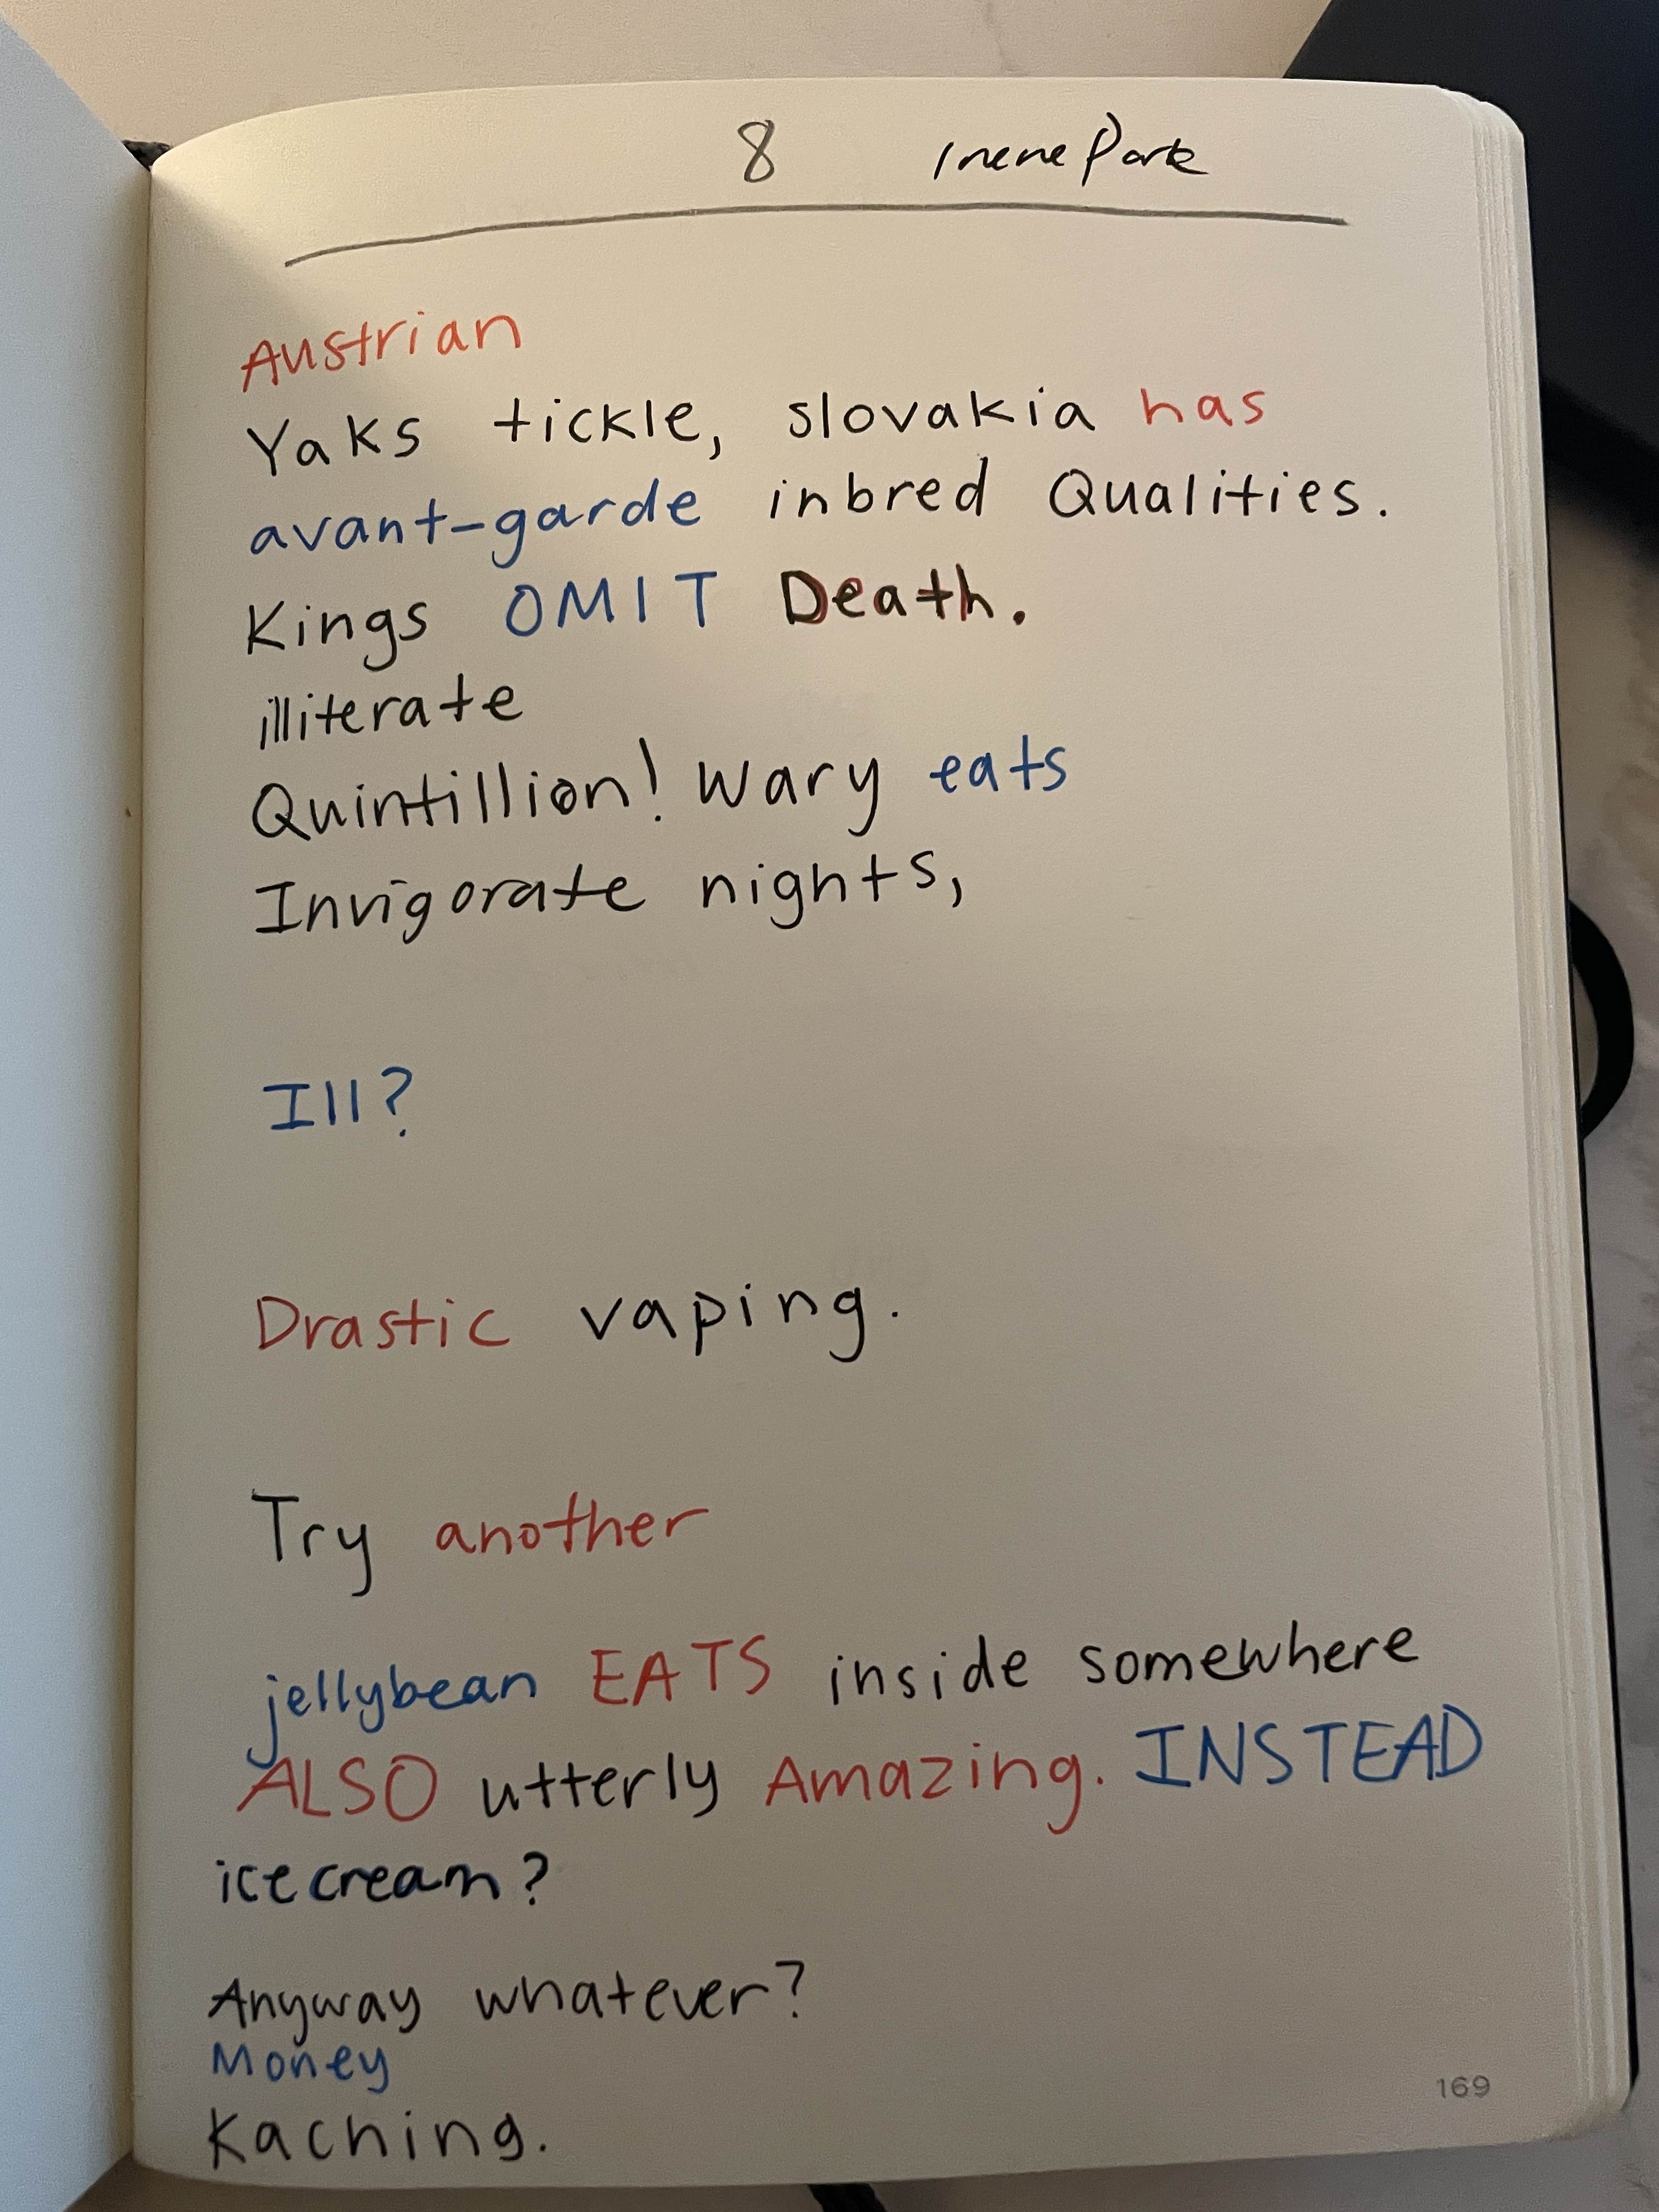 8 Irene Park
Austrian
Yaks tickle, slovakia has
avant-garde inbred Qualities.
Kings OMIT Death.
illiterate
Quintillion! Wary eats
Invigorate nights,
Ill?
Drastic vaping.
Try another
jellybean EATS inside somewhere
ALSO utterly Amazing. INSTEAD
ice cream?
Anyway whatever?
Money
Kaching.
169